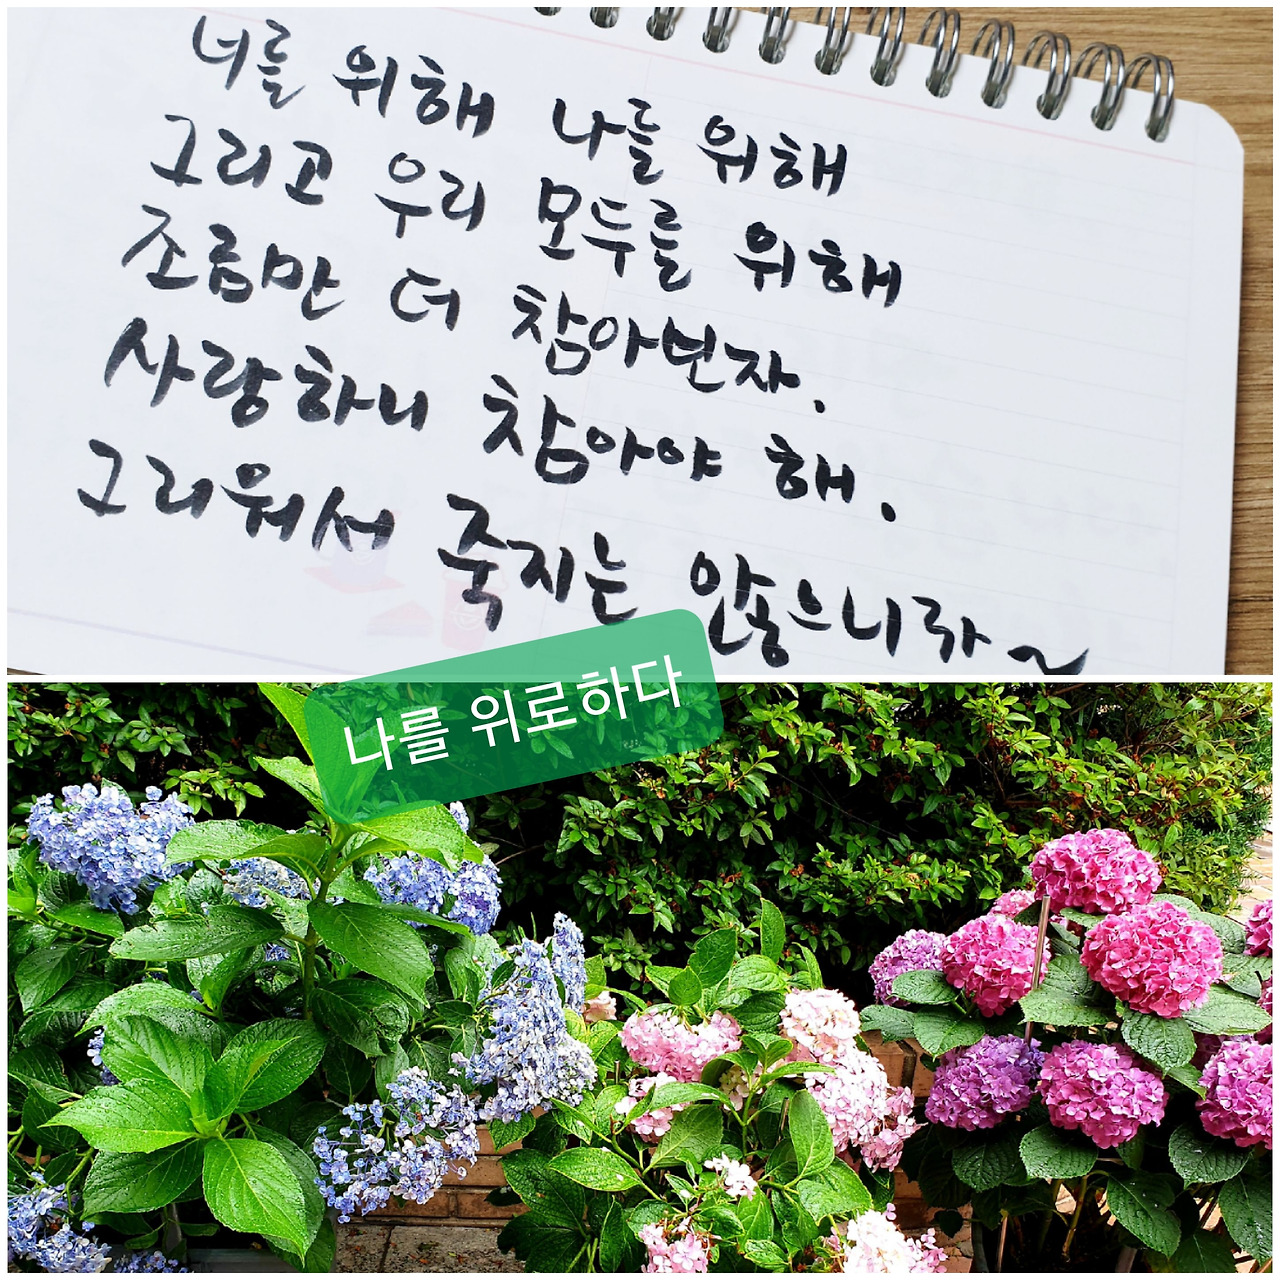 너를 위해 나를 위해
그리고 우리 모두를 위해
조금만 더 참아보자.
사랑하니 참아야 해.
그리워서 죽지는 않으니라~
나를 위로하다